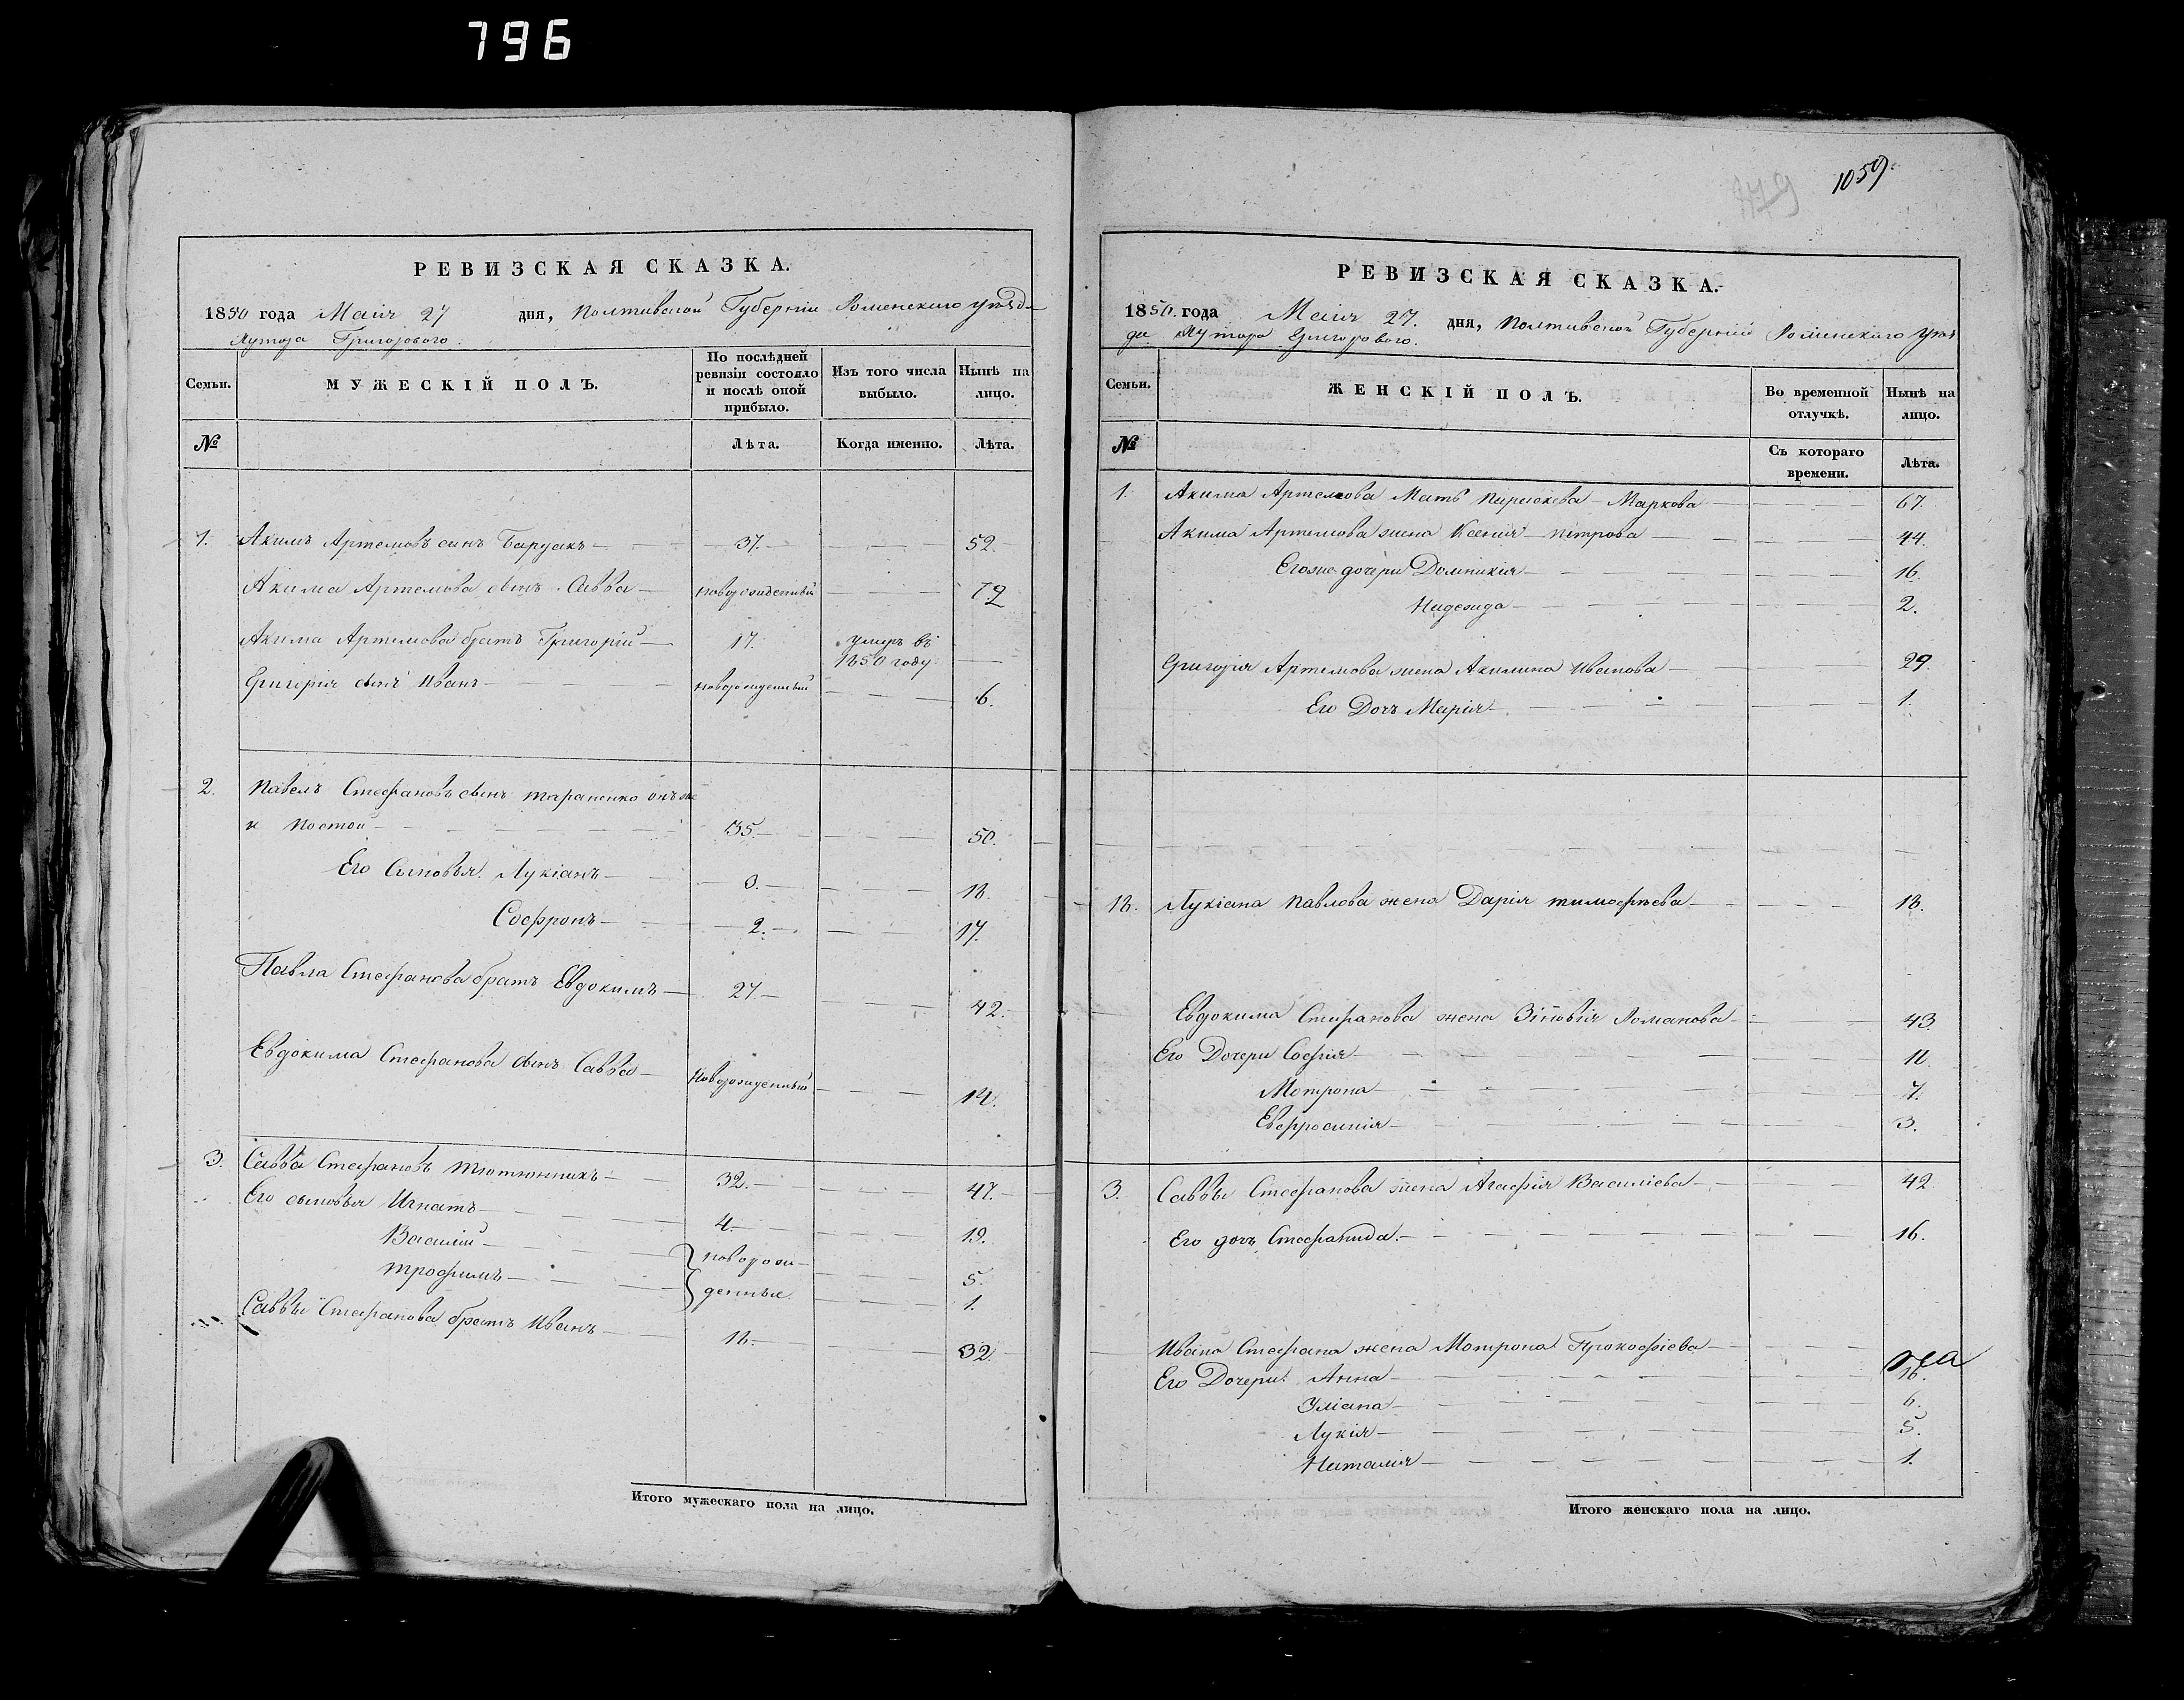 796
РЕВИЗСКАЯ СКАЗКА.
1850 года Маія 27 дня, Полтавской Губерніи Роменскаго уѣзда
Хутора Григорового.
Семьи.
МУЖЕСКІЙ ПОЛЪ.
По послѣдней ревизіи состояло и послѣ оной прибыло.
Изъ того числа выбыло.
Нынѣ на лицо.
№
Лѣта.
Когда именно.
Лѣта.
1. Акимъ Артемовъ сынъ 37. 52.
Акима Артемова сынъ Савва новорожденный 12
Акима Артемова братъ Григорій 17. умеръ въ 1850 году
Григорія сынъ Иванъ новорожденный 6.
2. Павелъ Стефановъ сынъ Тараненко онъ же
и Костой 35. 50.
Его Сыновья Лукіанъ 3. 18.
Софронъ 2. 17.
Павла Стефанова братъ Евдокимъ 27. 42.
Евдокима Стефанова сынъ Савва Новорожденный 14.
3. Савва Стефановъ Тютюнникъ 32. 47.
Его сыновья Игнатъ 4. 19.
Василій новорож- 5.
Трофимъ денные 1.
Саввы Стефанова братъ Иванъ 18. 32.
Итого мужескаго пола на лицо.
1059.
РЕВИЗСКАЯ СКАЗКА.
1850 года Маія 27. дня, Полтавской Губерніи Роменскаго уѣз
да Хутора Григорового.
Семьи.
ЖЕНСКІЙ ПОЛЪ.
Во временной отлучкѣ.
Нынѣ на лицо.
№
Съ котораго времени.
Лѣта.
1. Акима Артемова Мать Маркова 67.
Акима Артемова жена Ксенія Петрова 44.
Его же дочери Домникія 16.
Надежда 2.
Григорія Артемова жена Акилина Иванова 29.
Его Дочь Марія 1.
18. Лукіана Павлова жена Дарія Тимофѣева 18.
Евдокима Стефанова жена Зіновія Романова 43.
Его Дочери Софія 11.
Мотрона 7.
Евфросинія 3.
3. Саввы Стефанова жена Агафія Василіева 42.
Его дочь Стефанида 16.
Ивана Стефана жена Мотрона Прокофіева
Его Дочери Анна
Уліана 6.
Лукія 5.
Наталія 1.
Итого женскаго пола на лицо.